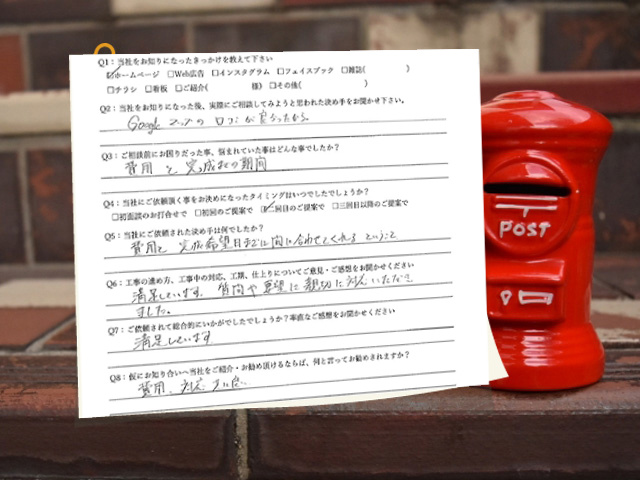 Q1：当社をお知りになったきっかけを教えて下さい
☑ホームページ □Web広告 □インスタグラム □フェイスブック □雑誌( )
□チラシ □看板 □ご紹介( 様) □その他( )
Q2：当社をお知りになった後、実際にご相談してみようと思われた決め手をお聞かせ下さい。
Googleマップの口コミが良かったから
Q3：ご相談前にお困りだった事、悩まれていた事はどんな事でしたか？
費用と完成までの期間
Q4：当社にご依頼頂く事をお決めになったタイミングはいつでしたでしょうか？
□初面談のお打合せで □初回のご提案で ☑二回目のご提案で □三回目以降のご提案で
Q5：当社にご依頼された決め手は何でしたか？
費用と完成希望日までに間に合わせてくれるということ
Q6：工事の進め方、工事中の対応、工期、仕上りについてご意見・ご感想をお聞かせください
満足しています。質問や要望に親切に対応いただき
ました。
Q7：ご依頼されて総合的にいかがでしたでしょうか？率直なご感想をお聞かせください
満足しています
Q8：仮にお知り合いへ当社をご紹介・お勧め頂けるならば、何と言ってお勧めされますか？
費用、対応
POST